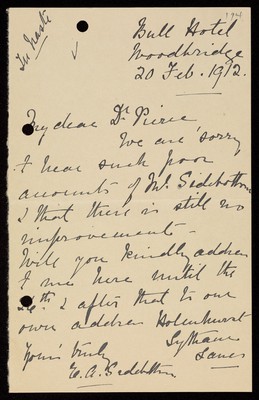 194
In haste
Bull Hotel
Woodbridge
20 Feb. 1912.
My dear Dr Pierce
We are sorry
to hear such poor
accounts of Mr. Sidebottom
& that there is still no
improvement -
Will you kindly address
to me here until the
& after that to our
own address Holmhurst
Lytham
Lancs
Yours truly
E. A. Sidebottom